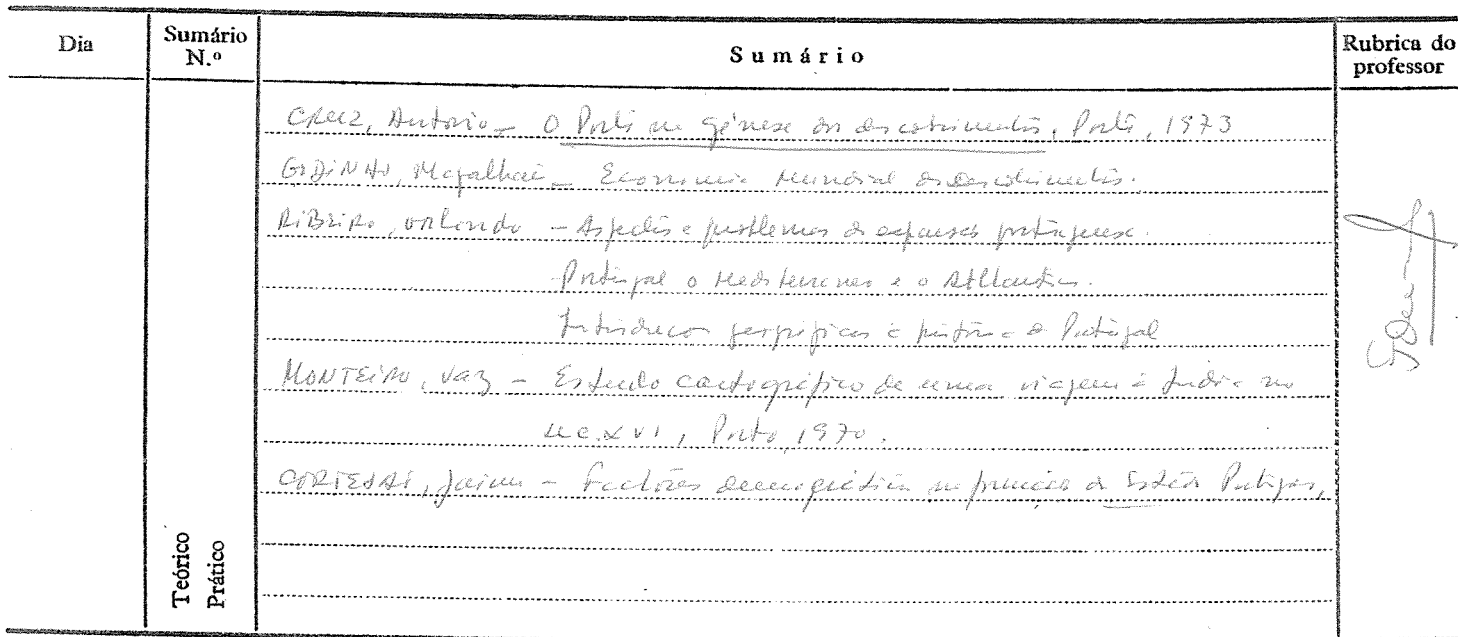 Dia
Sumário N.º
Sumário
Rubrica do professor
CRUZ, António – O Porto na génese dos descobrimentos, Porto, 1973
GODINHO, Magalhães – Economia Mundial dos descobrimentos.
RIBEIRO, Orlando – Aspectos e problemas da expansão portuguesa.
Portugal o Mediterraneo e o Atllantico.
Introducao geográficas à história de Portugal
MONTEIRO, Vaz – Estudo cartográfico de uma viagem à India no
sec. XVI, Porto, 1970.
CORTESÃO, Jaime – Factores democráticos na formação do Estado Portugues,
Teórico
Prático